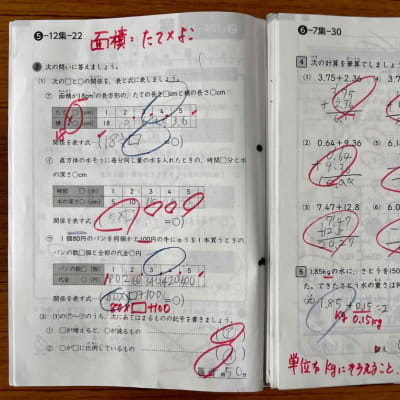 5-12集-22
面積：たて×よこ
2 次の問いに答えましょう。
(1) 次の□と○の関係を、表と式に表しましょう。
㋐ 面積が18cm²の長方形の、たての長さ□cmと横の長さ○cm
たて□ 1 2 3 4 5
横○ 18 9
関係を表す式 (18÷□=○)
㋑ 直方体の水そうに毎分同じ量の水を入れたときの、時間□分と水の深さ○cm
時間 □(分) 1 2 3 4 5
水の深さ○(cm) 5 10 15
関係を表す式 (5×□=○)
㋒ 1個80円のパンを何個かと100円の牛にゅうを1本買うときの、パンの数□個と全部の代金○円
パンの数□(個) 1 2 3 4 5
代金 ○(円) 180 260 340 420 500
関係を表す式 (80×□+100=○)
80×□+100
(2) (1)の㋐~㋒のうち、次にあてはまるものの記号を書きましょう。
① □が増えると、○が減るもの
② ○が□に比例しているもの
6-7集-30
4 次の計算を筆算でしましょう
(1) 3.75+2.36
3.75
+2.36
(2) 0.64+9.36
0.64
+9.36
(3) 7.47+12.8
7.47
+12.8
20.27
5 1.85kgの水に、さとうを150
た。できたさとう水の重さは何
(式) 1.85+0.15=2
kg 0.15kg
単位を kgにそろえること。